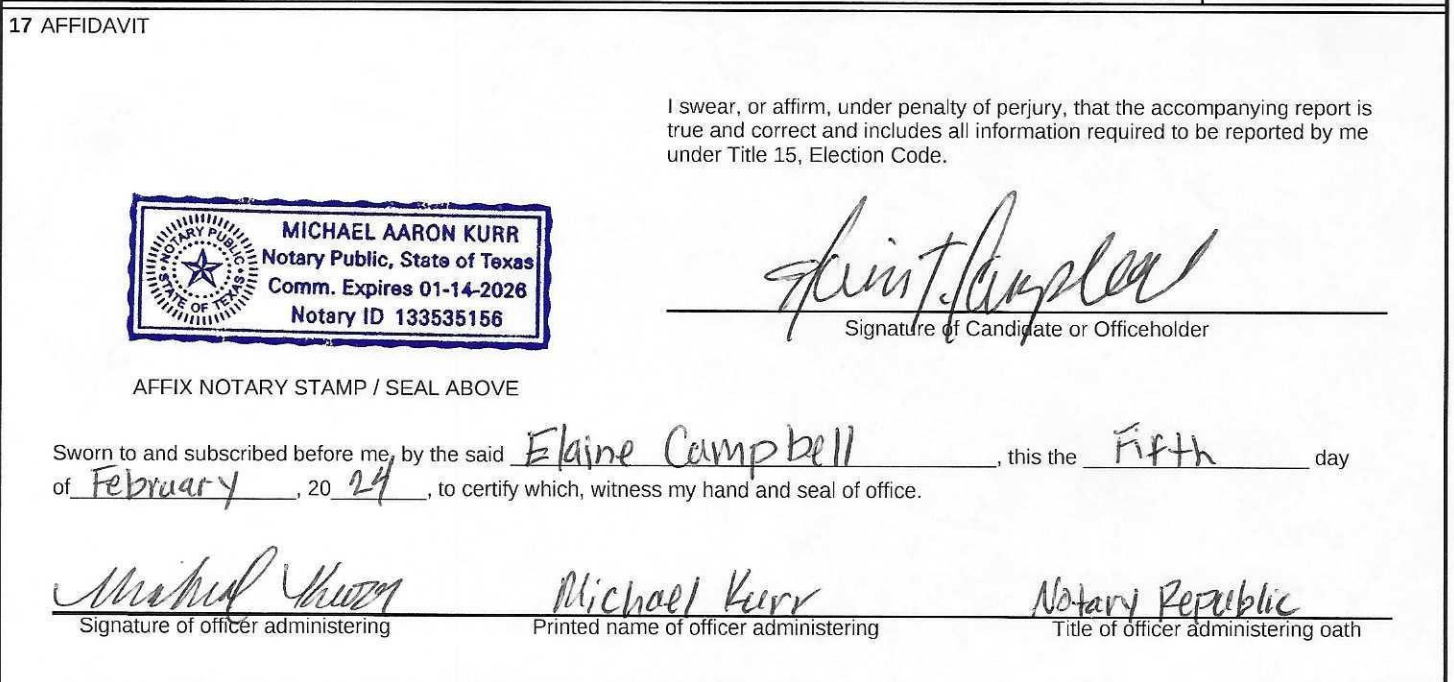 17 AFFIDAVIT
I swear, or affirm, under penalty of perjury, that the accompanying report is
true and correct and includes all information required to be reported by me
under Title 15, Election Code.
NOTARY PUBLIC
STATE OF TEXAS
MICHAEL AARON KURR
Notary Public, State of Texas
Comm. Expires 01-14-2026
Notary ID 133535156
Signature of Candidate or Officeholder
AFFIX NOTARY STAMP / SEAL ABOVE
Sworn to and subscribed before me, by the said Elaine Campbell, this the Fifth day
of February, 20 24, to certify which, witness my hand and seal of office.
Michael Kurr Notary Republic
Signature of officer administering Printed name of officer administering Title of officer administering oath